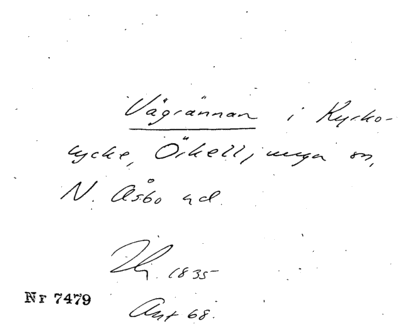 Vågrännan i Kyrko-
lycke, Örkelljunga sn,
N. Åsbo hd.
1835
Nr 7479
Ant 68.